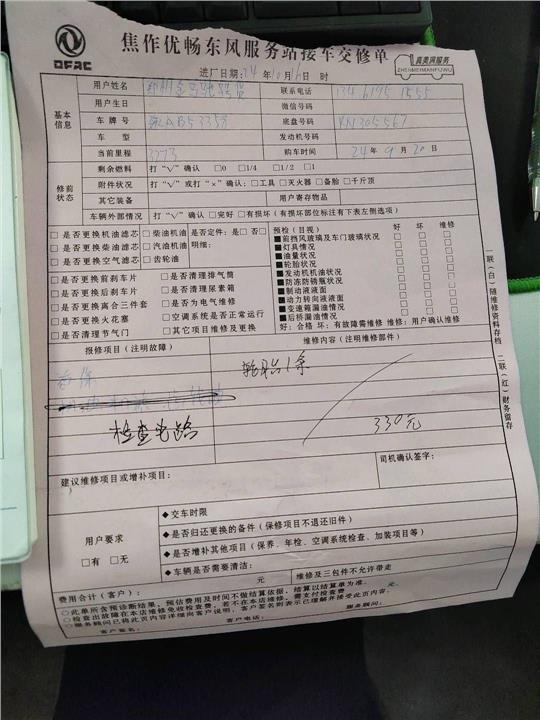 DFAC
焦作优畅东风服务站接车交修单
真美满服务
ZHENMEIMANFUWU
进厂日期：24年10月16日 时
基本信息
用户姓名 联系电话 134 6195 1555
用户生日 微信号码
车牌号 底盘号码 RN305567
车型 发动机号码
当前里程 3773 购车时间 24年9月20日
修前状态
剩余燃料 打"√"确认 □0 □1/4 □1/2 □1
附件状况 打"√"或打"×"确认：□工具 □灭火器 □备胎 □千斤顶
其它装备 用户寄存物品
车辆外部情况 打"√"确认 □完好 □有损坏（有损坏部位标注有下表左侧选项）
□是否更换机油滤芯 □柴油机油 □是否定件：是□ 否□
□是否更换柴油滤芯 □汽油机油 明细：
□是否更换空气滤芯 □齿轮油
□是否更换前刹车片 □是否清理排气筒
□是否更换后刹车片 □是否清理尿素箱
□是否更换离合三件套 □是否为电气维修
□是否更换火花塞 □空调系统是否正常运行
□是否清理节气门 □其它项目维修及更换
预检（目视） 好 坏 维修
■前挡风玻璃及车门玻璃状况 □ □ □
■灯具情况 □ □ □
■油量状况 □ □ □
■轮胎状况 □ □ □
■发动机机油状况 □ □ □
■防冻防锈瓶状况 □ □ □
■制动液液面 □ □ □
■动力转向液液面 □ □ □
■变速箱漏油情况 □ □ □
■后桥漏油情况 □ □ □
好：合格 坏：有故障需维修 维修：用户确认维修
报修项目（注明故障） 维修内容（注明维修部件）
轮胎1条
检查电路
330元
建议维修项目或增补项目：
司机确认签字：
用户要求
□有 □无
◆交车时限
◆是否归还更换的备件（保修项目不退还旧件）
◆是否增补其他项目（保养、年检、空调系统检查、加装项目等）
◆车辆是否需要清洁：
费用合计（客户）： 元 维修及三包件不允许带走
○此单所含预诊断结果、预估费用及时间不做结算依据，结算以结算单为准。 元.
○检查出故障在本店维修免收检查费，若不在本店维修，需支付检查费
○服务顾问已将此页内容详细向客户说明，客户签名则表示已理解并接受此页内容：
客户签名： 客户电话： 服务顾问：
一联（白）随维修资料存档 二联（红）财务留存